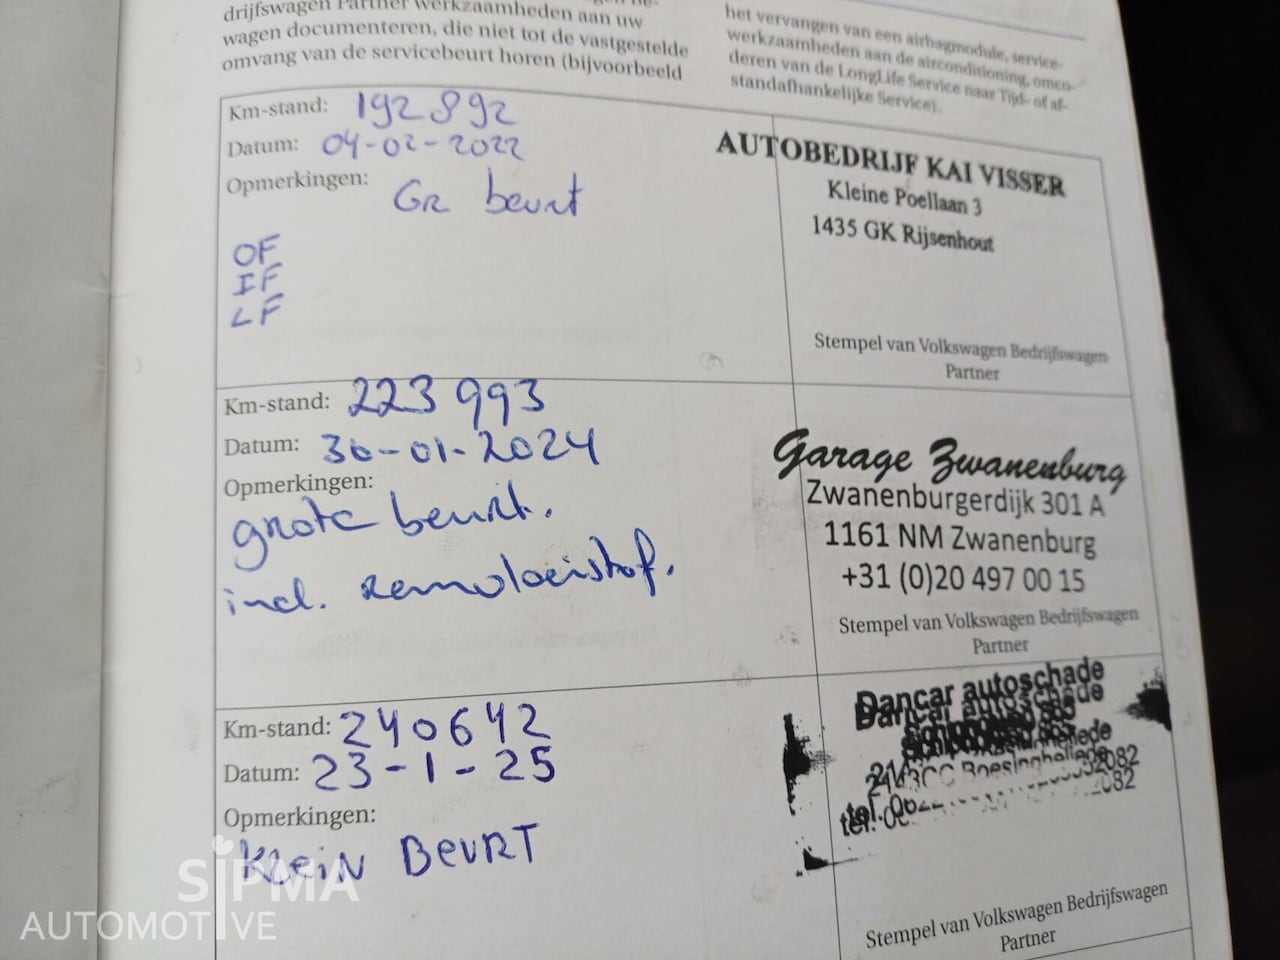 drijfswagen Partner werkzaamheden aan uw
wagen documenteren, die niet tot de vastgestelde
omvang van de servicebeurt horen (bijvoorbeeld
het vervangen van een airbagmodule, service-
werkzaamheden aan de airconditioning, omco-
deren van de LongLife Service naar Tijd- of af-
standafhankelijke Service).
Km-stand: 192892
Datum: 04-02-2022
Opmerkingen:
Gr beurt
OF
IF
LF
AUTOBEDRIJF KAI VISSER
Kleine Poellaan 3
1435 GK Rijsenhout
Stempel van Volkswagen Bedrijfswagen
Partner
Km-stand: 223993
Datum: 30-01-2024
Opmerkingen:
grote beurt.
incl. remvloeistof.
Garage Zwanenburg
Zwanenburgerdijk 301 A
1161 NM Zwanenburg
+31 (0)20 497 00 15
Stempel van Volkswagen Bedrijfswagen
Partner
Km-stand: 240642
Datum: 23-1-25
Opmerkingen:
Klein BEURT
Dancar autoschade
Dancar autoschade
tel.
tel.
Stempel van Volkswagen Bedrijfswagen
Partner
SIPMA
AUTOMOTIVE